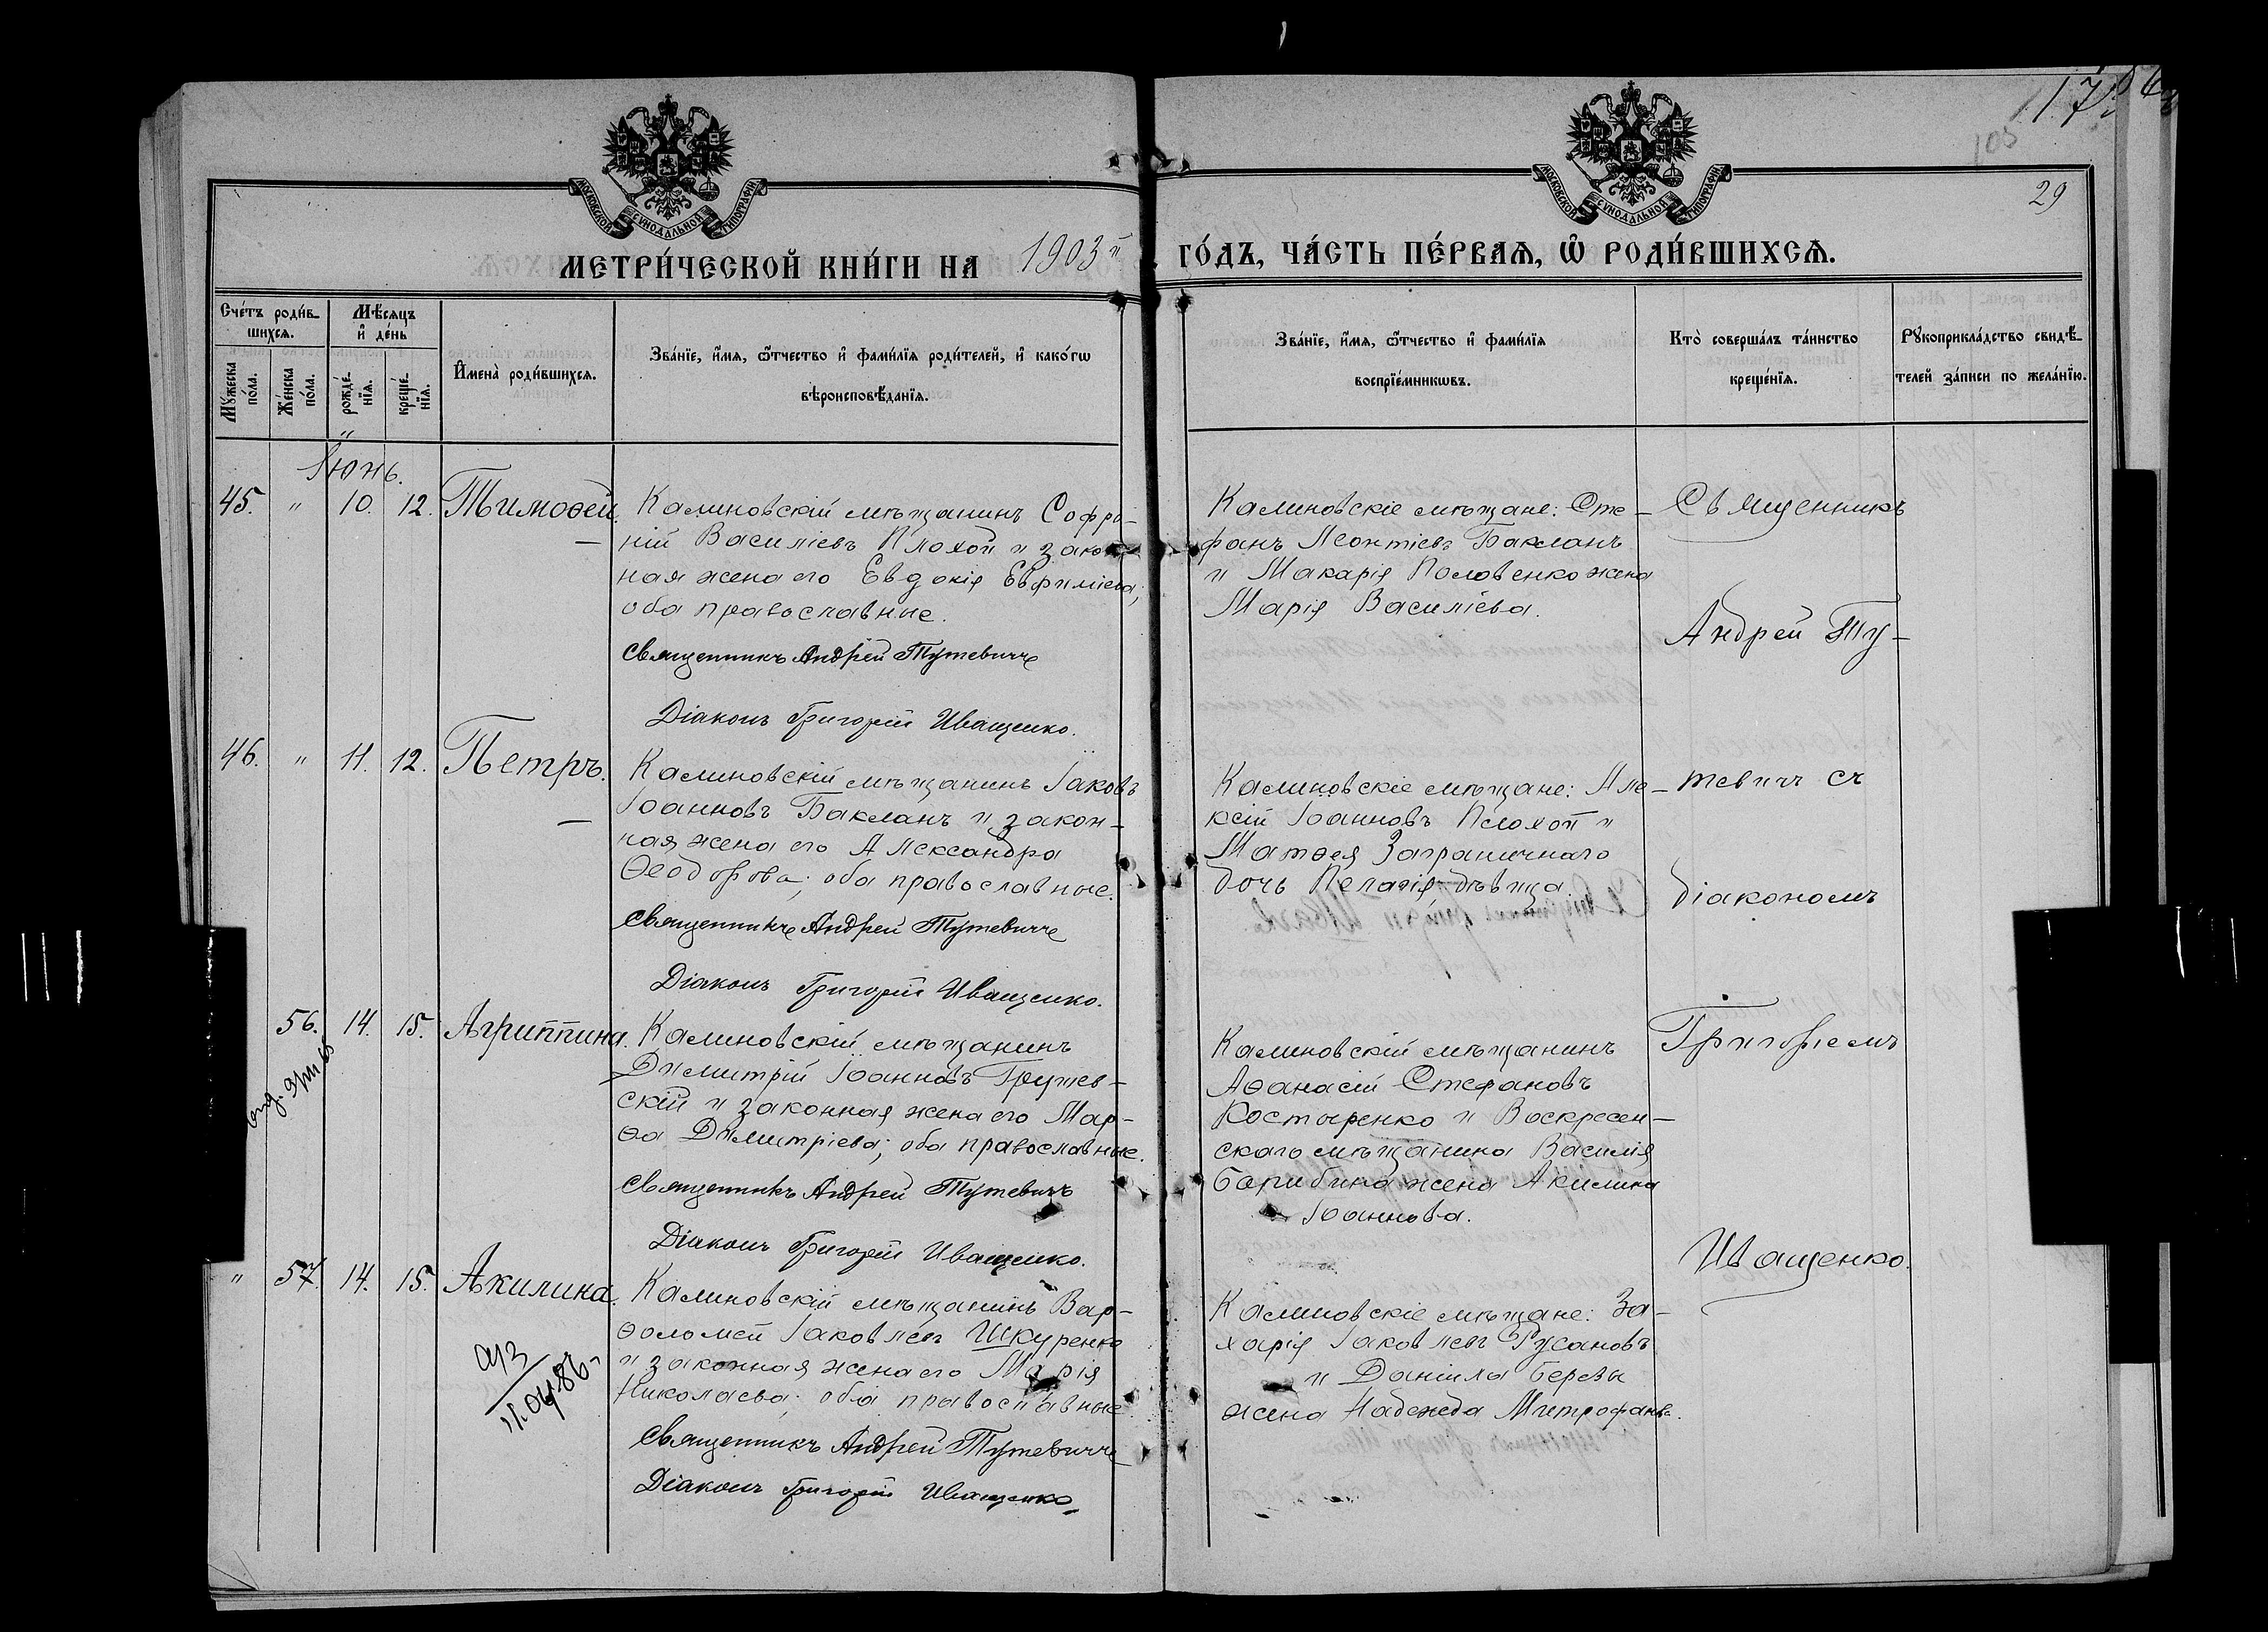 17
105
29
МОСКОВСКОЙ СѴНОДАЛЬНОЙ ТИПОГРАФІИ
МОСКОВСКОЙ СѴНОДАЛЬНОЙ ТИПОГРАФІИ
МЕТРИ́ЧЕСКОЙ КНИ́ГИ НА 1903й ГО́ДЪ, ЧА́СТЬ ПЕ́РВАѦ, Ѽ РОДИ́ВШИХСѦ.
Сче́тъ роди́в-
шихсѧ.
Мꙋ́жеска по́ла.
Же́нска по́ла.
Мѣ́сѧцъ
и҆ де́нь
рожде́-
нїѧ.
креще́-
нїѧ.
И҆мена̀ роди́вшихсѧ.
Зва́нїе, и҆́мѧ, ѻ҆́тчество и҆ фами́лїѧ роди́телей, и҆ како́гѡ
вѣроисповѣ́данїѧ.
Зва́нїе, и҆́мѧ, ѻ҆́тчество и҆ фами́лїѧ
воспрїе́мникѡвъ.
Кто̀ соверша́лъ та́инство
креще́нїѧ.
Рꙋкоприкла́дство свидѣ́-
телей за́писи по жела́нїю.
Іюнь.
45. " 10. 12. Тимоѳей.
Калиновскій мѣщанинъ Софро-
ній Василіевъ Плохой и закон-
ная жена его Евдокія Евфиміева;
оба православные.
Священникъ Андрей Тутевичъ
Діаконъ Григорій Иващенко.
Калиновскіе мѣщане: Сте-
фанъ Леонтіевъ Бакланъ
и Макарія Половенко жена
Марія Василіева.
Священникъ
Андрей Ту-
46. " 11. 12. Петръ.
Калиновскій мѣщанинъ Іаковъ
Іоанновъ Бакланъ и закон-
ная жена его Александра
Ѳеодорова; оба православные.
Священникъ Андрей Тутевичъ
Діаконъ Григорій Иващенко.
Калиновскіе мѣщане: Але-
ксій Іоанновъ Плохой и
Матѳея Заграничнаго
дочь Пелагія дѣвица.
тевичъ съ
діакономъ
56. 14. 15. Агриппина.
Калиновскій мѣщанинъ
Димитрій Іоанновъ Гружев-
скій и законная жена его Мар-
ѳа Димитріева; оба православные.
Священникъ Андрей Тутевичъ
Діаконъ Григорій Иващенко.
Калиновскій мѣщанинъ
Аѳанасій Стефановъ
Костыренко и Воскресен-
скаго мѣщанина Василія
Барибина жена Акилина
Іоаннова.
Григоріемъ
Иващенко.
" 57. 14. 15. Акилина.
Калиновскій мѣщанинъ Вар-
ѳоломей Іаковлевъ Шкуренко
и законная жена его Марія
Николаева; оба православные
Священникъ Андрей Тутевичъ
Діаконъ Григорій Иващенко
Калиновскіе мѣщане: За-
харія Іаковлевъ Русановъ
и Даніила Березы
жена Надежда Митрофанва.